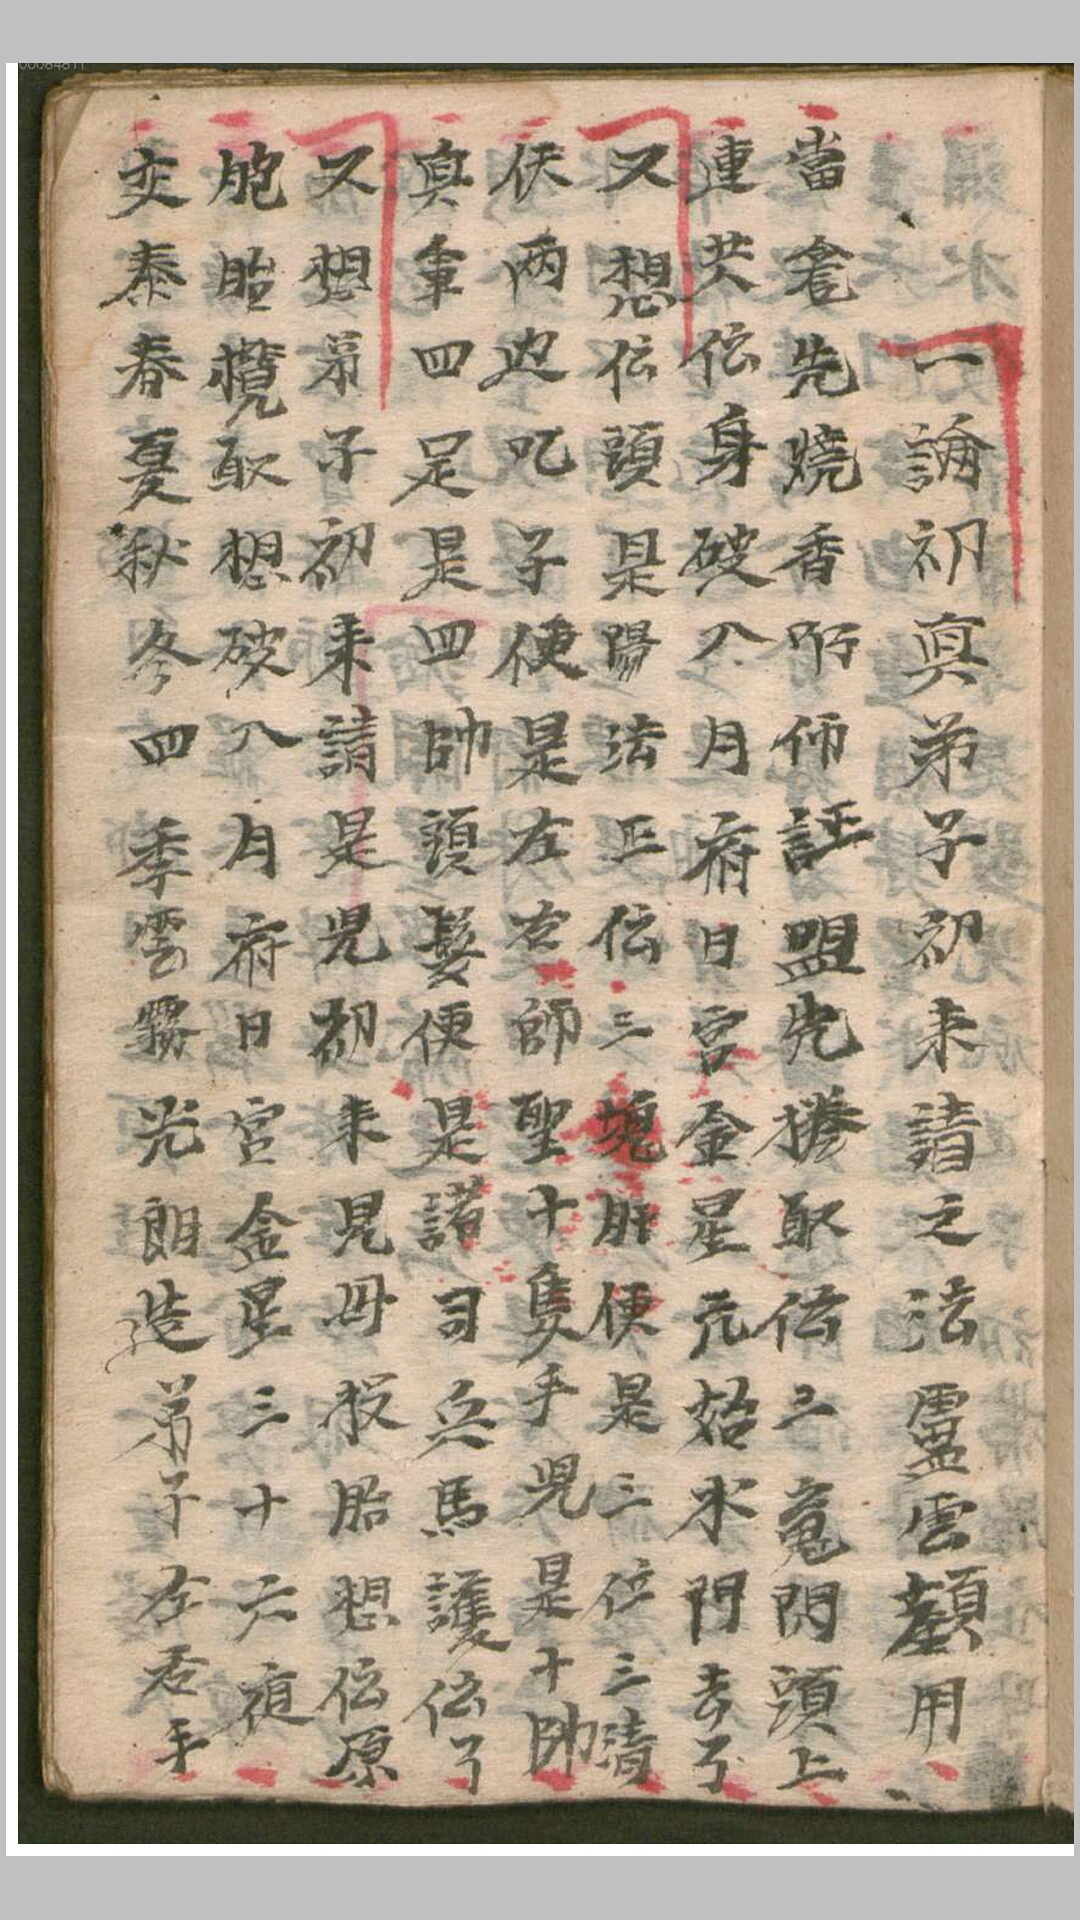 00084811
一論初真弟子初未請之法靈雲顛用
當喬先燒香𠫵师証盟先攃取伝三竜門頭上
連共伝身破入月府日宮金星元始水門去了
又想伝頭是陽法正伝三魂肝便是三位三清
伏兩边叱子便是左右師聖十隻手児是十帥
真奎四足是四帥頭髮便是諸司兵馬護伝了
又想弟子初来請是児初来見毋投胎想伝原
胞胎攬取想破入月府日宮金星三十六夜
交泰春夏秋冬四季雲霧光朗造弟子左右手